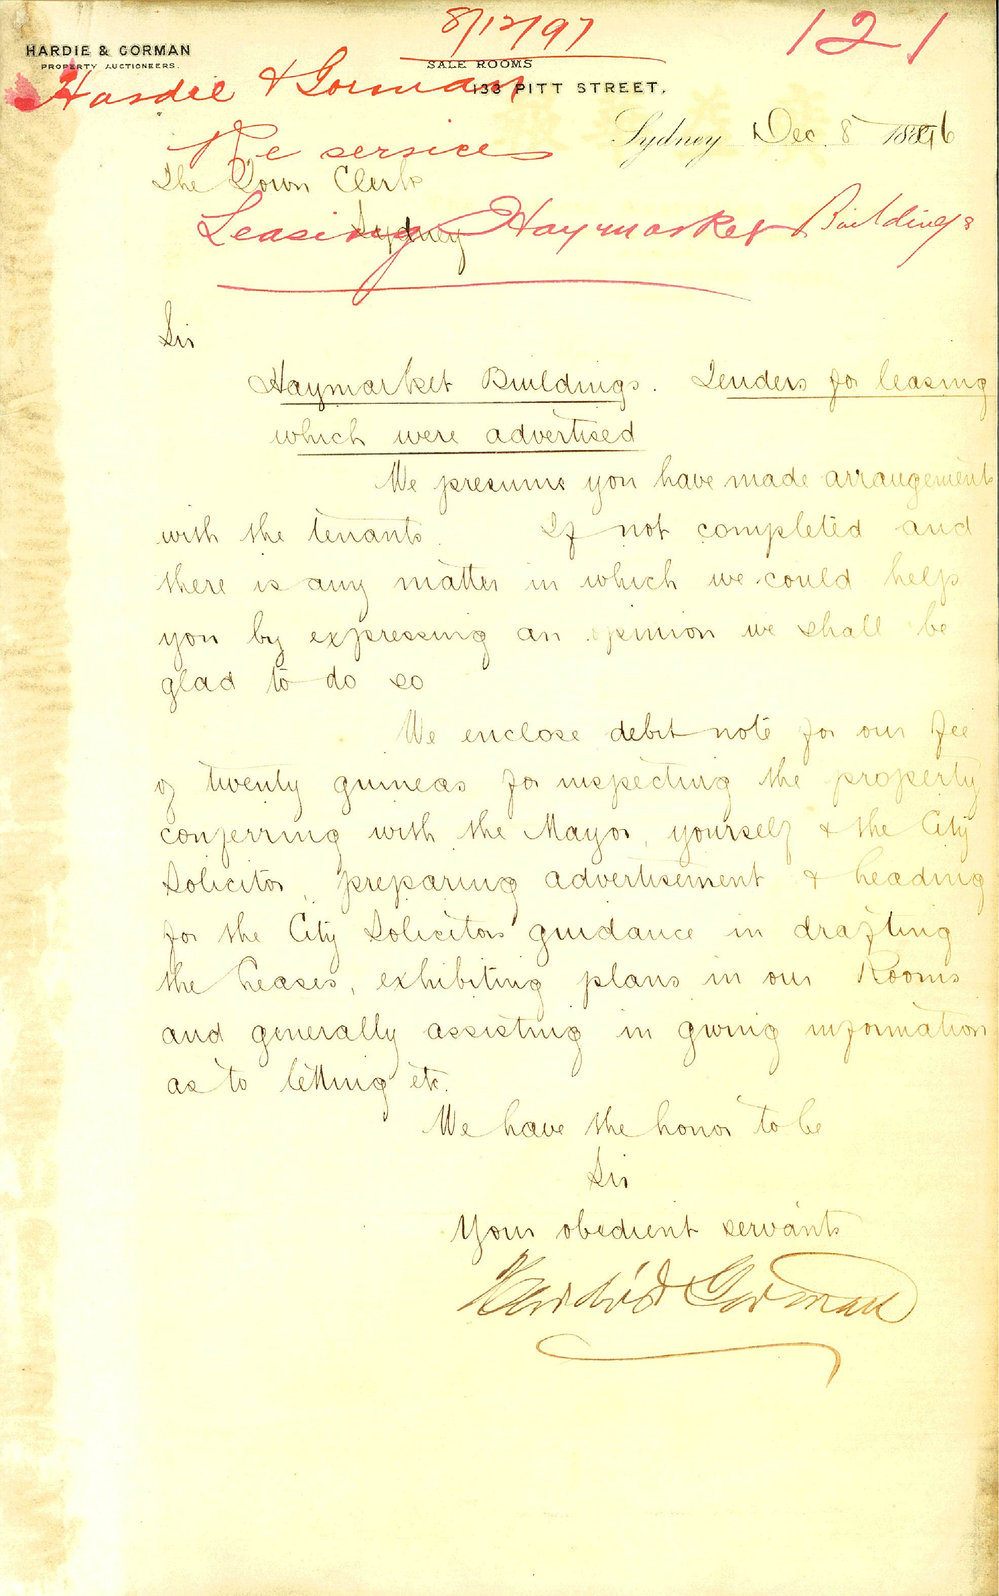 8/12/97
121
HARDIE & GORMAN
PROPERTY AUCTIONEERS.
SALE ROOMS
133 PITT STREET,
Hardie & Gorman
Re services
Leasing Haymarket Buildings
Sydney Dec. 8 1896
The Town Clerk
Sydney
Sir
Haymarket Buildings. Tenders for leasing
which were advertised
We presume you have made arrangements
with the tenants. If not completed and
there is any matter in which we could help
you by expressing an opinion we shall be
glad to do so
We enclose debit note for our fee
of twenty guineas for inspecting the property
conferring with the Mayor, yourself & the City
Solicitor, preparing advertisement & heading
for the City Solicitors guidance in drafting
the leases, exhibiting plans in our Rooms
and generally assisting in giving information
as to letting etc.
We have the honor to be
Sir
Your obedient servants
Hardie & Gorman